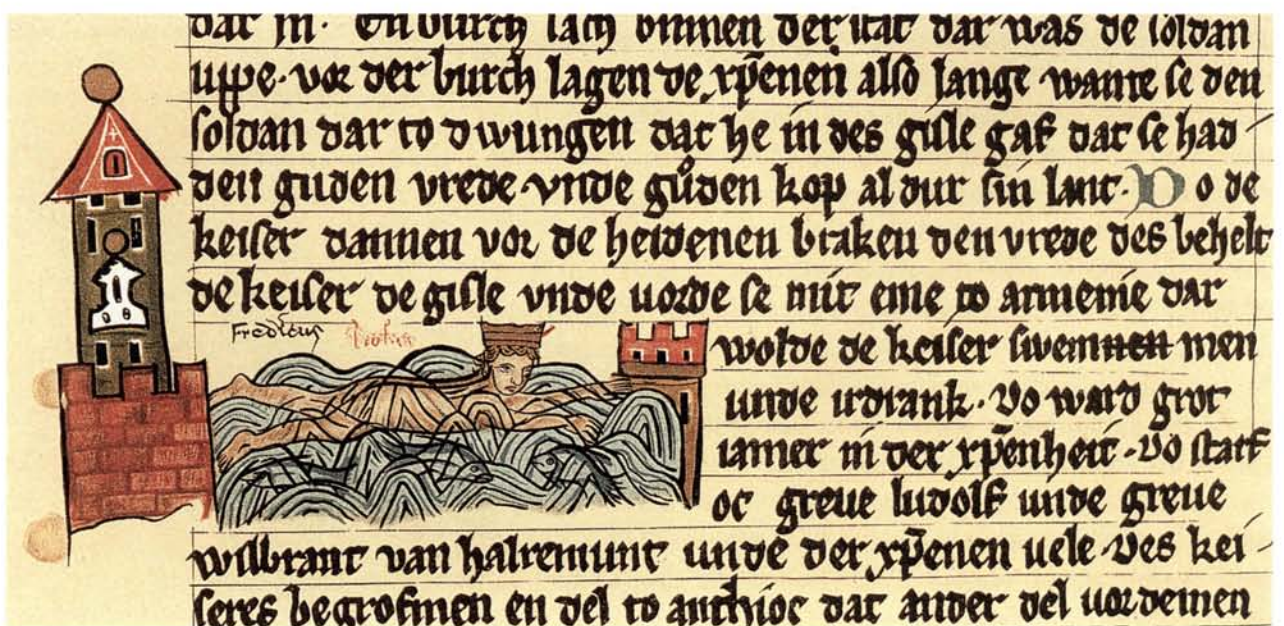 dar in· En burch lach binnen der stat dar was de soldan
uppe· vor der burch lagen de xp̄enen also lange wante se den
soldan dar to dwungen dat he in des gisle gaf dat se had
den guden vrede· vnde gůden kop al dur sin lant· Do de
keiser dannen vor de heidenen braken den vrede des behelt
de keiser de gisle vnde uorde se mit eme to armenie dar
Fredicus
wolde de keiser swemmen men
unde irdrank· Do ward grot
iamer in der xp̄enheit· Do starf
oc greue ludolf unde greue
wilbrant van halremunt unde der xp̄enen uele· Des kei
seres begrofmen en del to anthioc dat ander del uordemen